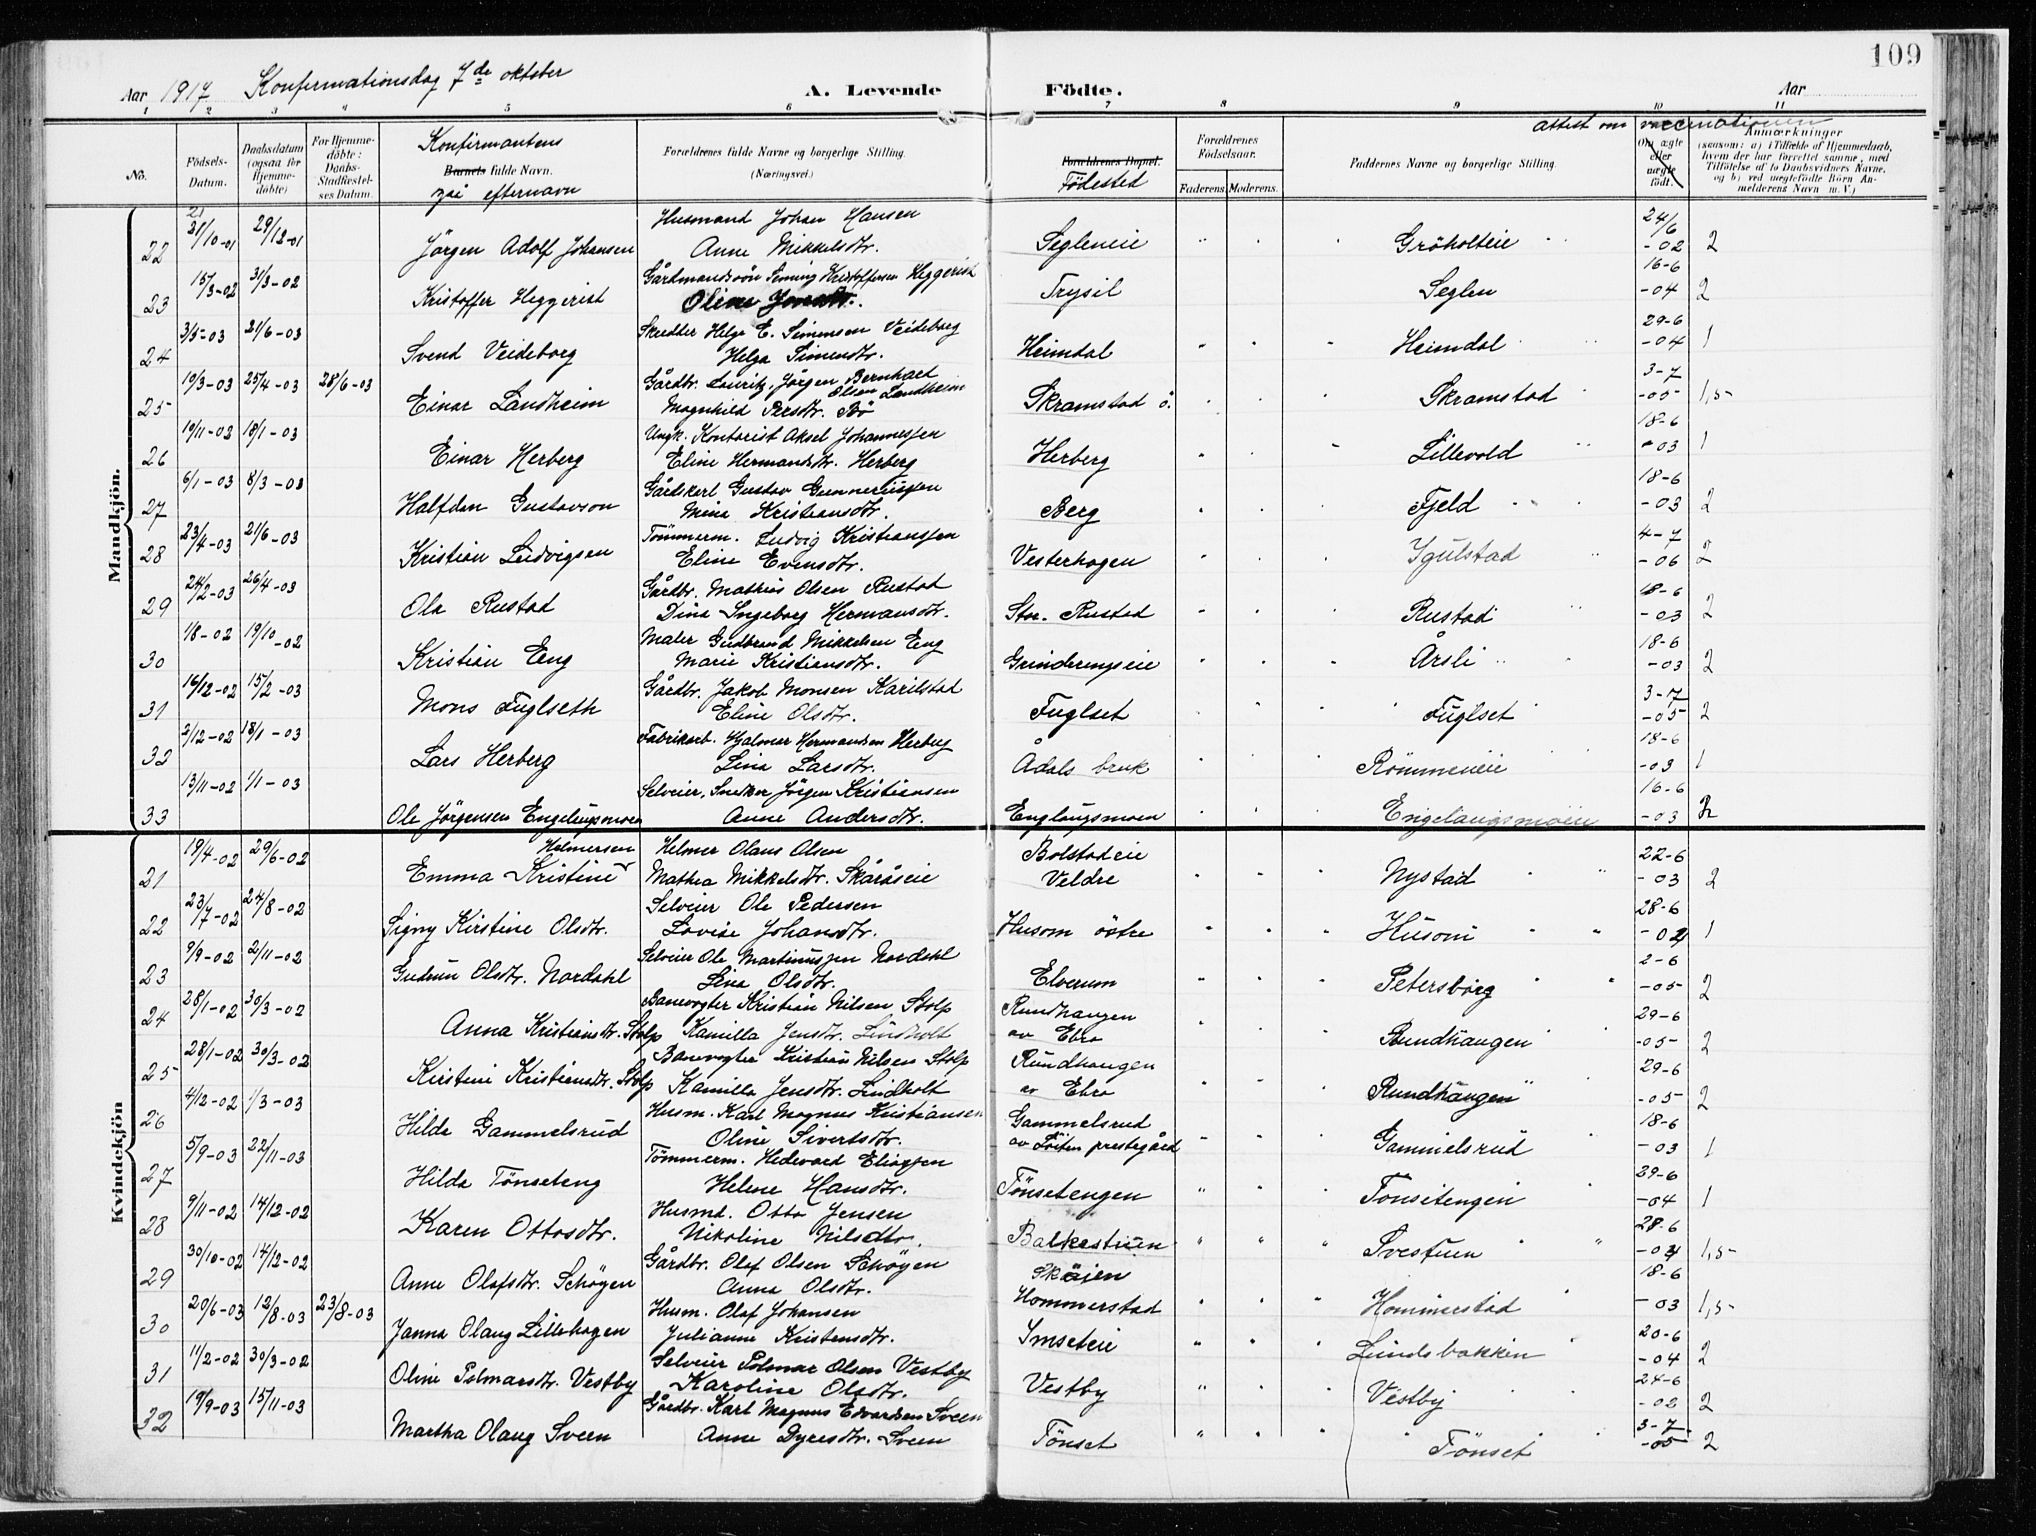 109
Aar 1917 Konfirmationsdag 7de oktober A. Levende Födte. Aar
1 2 3 4 5 6 7 8 9 10 11
No. Födsels-Datum. Daabsdatum (ogsaa for Hjemme-döbte) For Hjemme-döbte: Daabs-Stadfæstel-ses Datum. Konfirmantens Barnets fulde Navn. efternavn Forældrenes fulde Navne og borgerlige Stilling. (Næringsvei.) Forældrenes Bopæl. Födested Forældrenes Födselsaar. Faderens. Moderens. Faddernes Navne og borgerlige Stilling. attest om vaccinationen Om ægte eller uægte födt. Anmærkninger (saasom: a) i Tilfælde af Hjemmedaab, hvem der har forrettet samme, med Tilföielse af to Daabsvidners Navne, og b) ved uægtefödte Börn An-melderens Navn m. V.)
Mandkjön.
22 21/10-01 29/12-01 Jörgen Adolf Johansen Husmand Johan Hansen
Anne Mikkelsdtr. Segleneie Gröholteie 24/6 -02 2
23 15/3-02 31/3-02 Kristoffer Heggerist Gårdmandssön Kristoffersen Heggerist
Oline Trysil Seglen 16-6 -04 2
24 3/5-03 21/6-03 Svend Veideborg Skrædder Helge E. Simensen Veideborg
Helga Simensdtr. Heimdal Heimdal 29-6 -04 1
25 10/3-03 25/4-03 28/6-03 Einar Landheim Gårdbr. Lauritz Jörgen Bernhart Olsen Landheim
Magnhild Persdtr. Bö Skramstad ö. Skramstad 3-7 -05 1,5
26 19/11-02 18/1-03 Einar Herberg Ungk. Kontorist Aksel Johannessen
Eline Hermandsdtr. Herberg Herberg Lillevold 18-6 -03 1
27 6/1-03 8/3-03 Halfdan Gustavson Gårdskarl Gustav Gunneriussen
Mina Kristiansdtr. Berg Fjeld 18-6 -03 2
28 23/4-03 21/6-03 Kristian Ludvigsen Tömmerm. Ludvig Kristianssen
Eline Evensdtr. Vesterhagen Igulstad 4-7 -06 2
29 24/2-03 26/4-03 Ola Rustad Gårdbr. Mathias Olsen Rustad
Dina Ingeborg Hermansdtr. Stor. Rustad Rustad 18-6 -03 2
30 1/8-02 19/10-02 Kristian Eng Maler Gudbrand Mikkelsen Eng
Marie Kristiansdtr. Grinderengseie Årsli 18-6 -03 2
31 16/12-02 15/2-03 Mons Fuglseth Gårdbr. Jakob Monsen Karilstad
Eline Olsdtr. Fuglset Fuglset 3-7 -05 2
32 2/12-02 18/1-03 Lars Herberg Fabrikarb. Hjalmar Hermandsen Herberg
Lina Larsdtr. Ådals bruk Römmeneie 18-6 -03 1
33 13/11-02 1/1-03 Ole Jörgensen Engelaugsmoen Selveier, Snedker Jörgen Kristiansen
Anne Andersdtr. Englaugsmoen Engelaugsmoeie 16-6 -03 2
Kvindekjön
21 19/4-02 29/6-02 Emma Kristine Helmersen Helmer Olaus Olsen
Mathea Mikkelsdtr. Skåråseie Bolstadeie Veldre Nystad 22-6 -03 2
22 23/7-02 24/8-02 Signy Kirstine Olsdtr. Selveier Ole Pedersen
Lovise Johansdtr. Husom östre Husom 28-6 -04 1
23 9/9-02 2/11-02 Gudrun Olsdtr. Nordahl Selveier Ole Martinussen Nordahl
Lina Olsdtr. Elverum Petersborg 2-6 -05 2
24 28/1-02 30/3-02 Anna Kristiansdtr. Stolp Banevogter Kristian Nilsen Stolp
Kamilla Jensdtr. Lindholt Rundhaugen av Ebro Rundhaugen 29-6 -05 2
25 28/1-02 30/3-02 Kirstine Kristiansdtr. Stolp Banevogter Kristian Nilsen Stolp
Kamilla Jensdtr. Lindholt Rundhaugen av Ebro Rundhaugen 29-6 -05 2
26 4/12-02 1/3-03 Hilda Gammelsrud Husm. Karl Magnus Kristiansen
Oline Sivertsdtr. Gammelsrud av Löiten prestegård Gammelsrud 18-6 -03 1
27 5/9-03 22/11-03 Hilda Tönseteng Tömmerm. Hedevard Eliassen
Helene Hansdtr. Tönsetengen Tönsetengen 29-6 -04 1
28 9/11-02 14/12-02 Karen Ottosdtr. Husmd. Otto Jensen
Nikoline Nilsdtr. Balkestuen Svestuen 28-6 -04 1,5
29 30/10-02 14/12-02 Anne Olafsdtr. Schöyen Gårdbr. Olaf Olsen Schöyen
Anna Olsdtr. Skåien Hommerstad Hommerstad 18-6 -03 1,5
30 20/6-03 12/8-03 23/8-03 Janna Olaug Lillehagen Husm. Olaf Johansen
Julianne Kristensdtr. Imseteie Lundsbakken 20-6 -04 2
31 11/2-02 30/3-02 Oline Palmarsdtr. Vestby Selveier Palmar Olsen Vestby
Karoline Olsdtr. Vestby Vestby 24-6 -02 2
32 19/9-03 15/11-03 Martha Olaug Sveen Gårdbr. Karl Magnus Edvardsen Sveen
Anne Dyresdtr. Sveen Tönset Tönset 3-7 -05 2